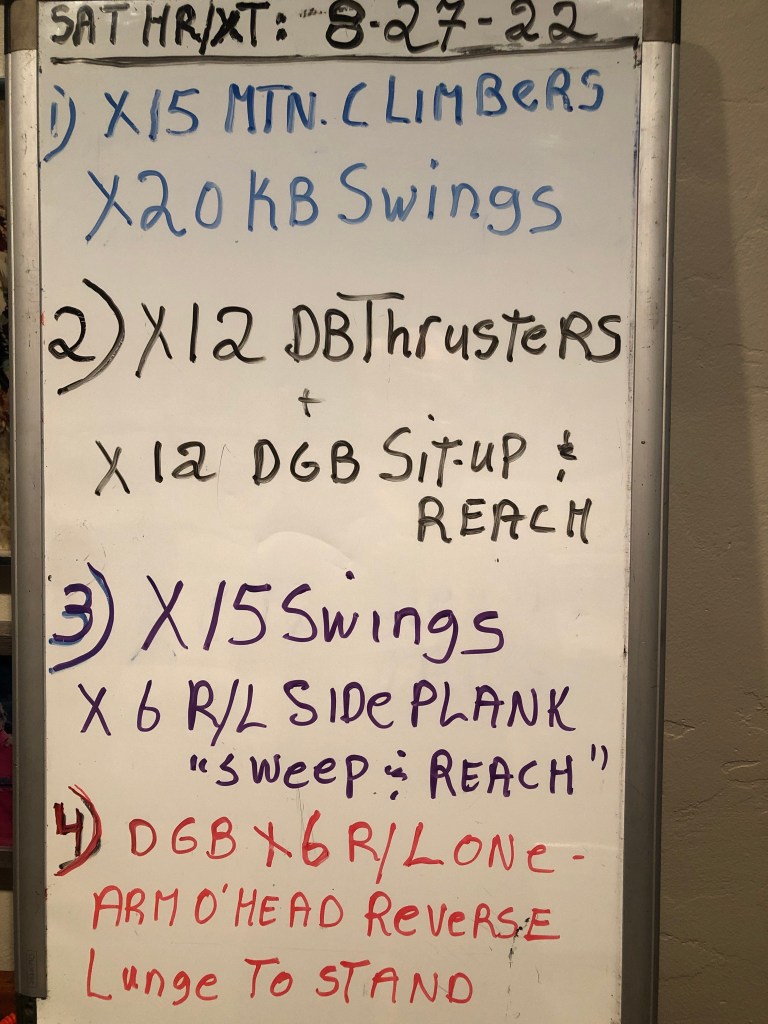 SAT HR/XT: 8-27-22
1) X15 MTN. CLIMBERS
X20 KB Swings
2) X12 DB ThrusteRS
+
X12 DGB Sit-up &
REACH
3) X15 Swings
X6 R/L SIDe PLANK
"Sweep & REACH"
4) DGB X6 R/L ONe-
ARM O'HEAD ReveRSE
Lunge To STAND